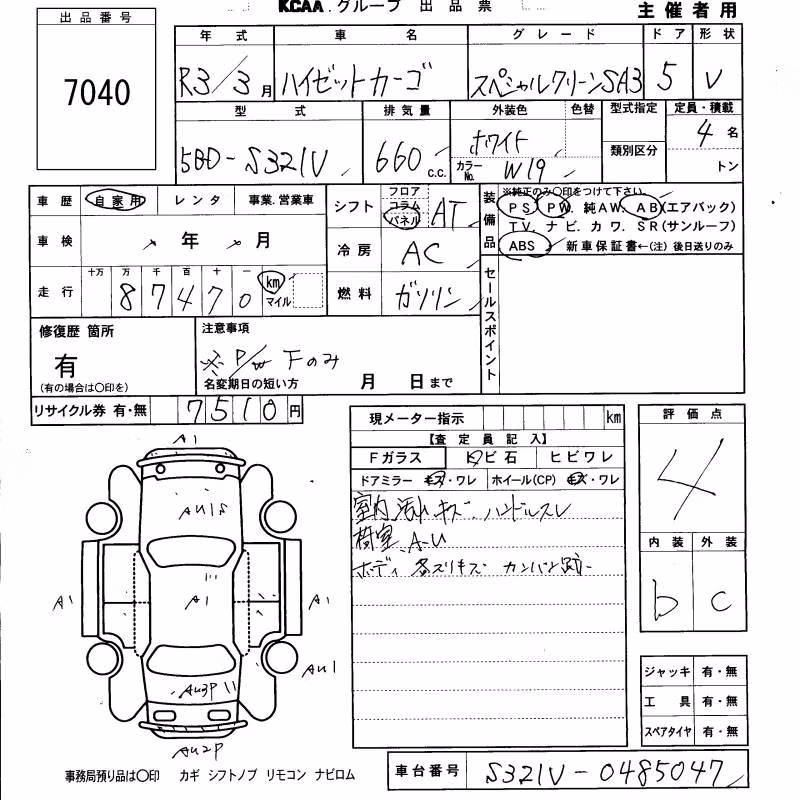 KCAA.グループ 出品票
主催者用
出品番号
7040
年式 車名 グレード ドア 形状
R3/3月 ハイゼットカーゴ スペシャルクリーンSA3 5 V
型式 排気量 外装色 色替 型式指定 定員・積載
5BD-S321V 660 c.c. ホワイト 4名
カラーNo. W19 類別区分 トン
車歴 自家用 レンタ 事業.営業車
車検 年 月
走行 十万 万 千 百 十 一
87470 km マイル
シフト フロア コラム パネル AT
冷房 AC
燃料 ガソリン
装備品 ※純正のみ〇印をつけて下さい。
PS PW. 純AW. AB(エアバック)
TV. ナビ. カワ. SR(サンルーフ)
ABS 新車保証書←(注)後日送りのみ
セールスポイント
修復歴 箇所
有
(有の場合は〇印を)
注意事項
※ P/W Fのみ
名変期日の短い方 月 日まで
リサイクル券 有・無 7510円
現メーター指示 km
【査定員記入】
Fガラス トビ石 ヒビワレ
ドアミラー キズ・ワレ ホイール(CP) キズ・ワレ
室内 汚れ キズ. ハンドルスレ
荷室. A-U
ボディ 各スリキズ カンバン跡
評価点
4
内装 外装
b c
ジャッキ 有・無
工具 有・無
スペアタイヤ 有・無
A1
AU1S
A1
A1
A1
AU1
AU3P
AU2P
事務局預り品は〇印 カギ シフトノブ リモコン ナビロム
車台番号 S321V-0485047